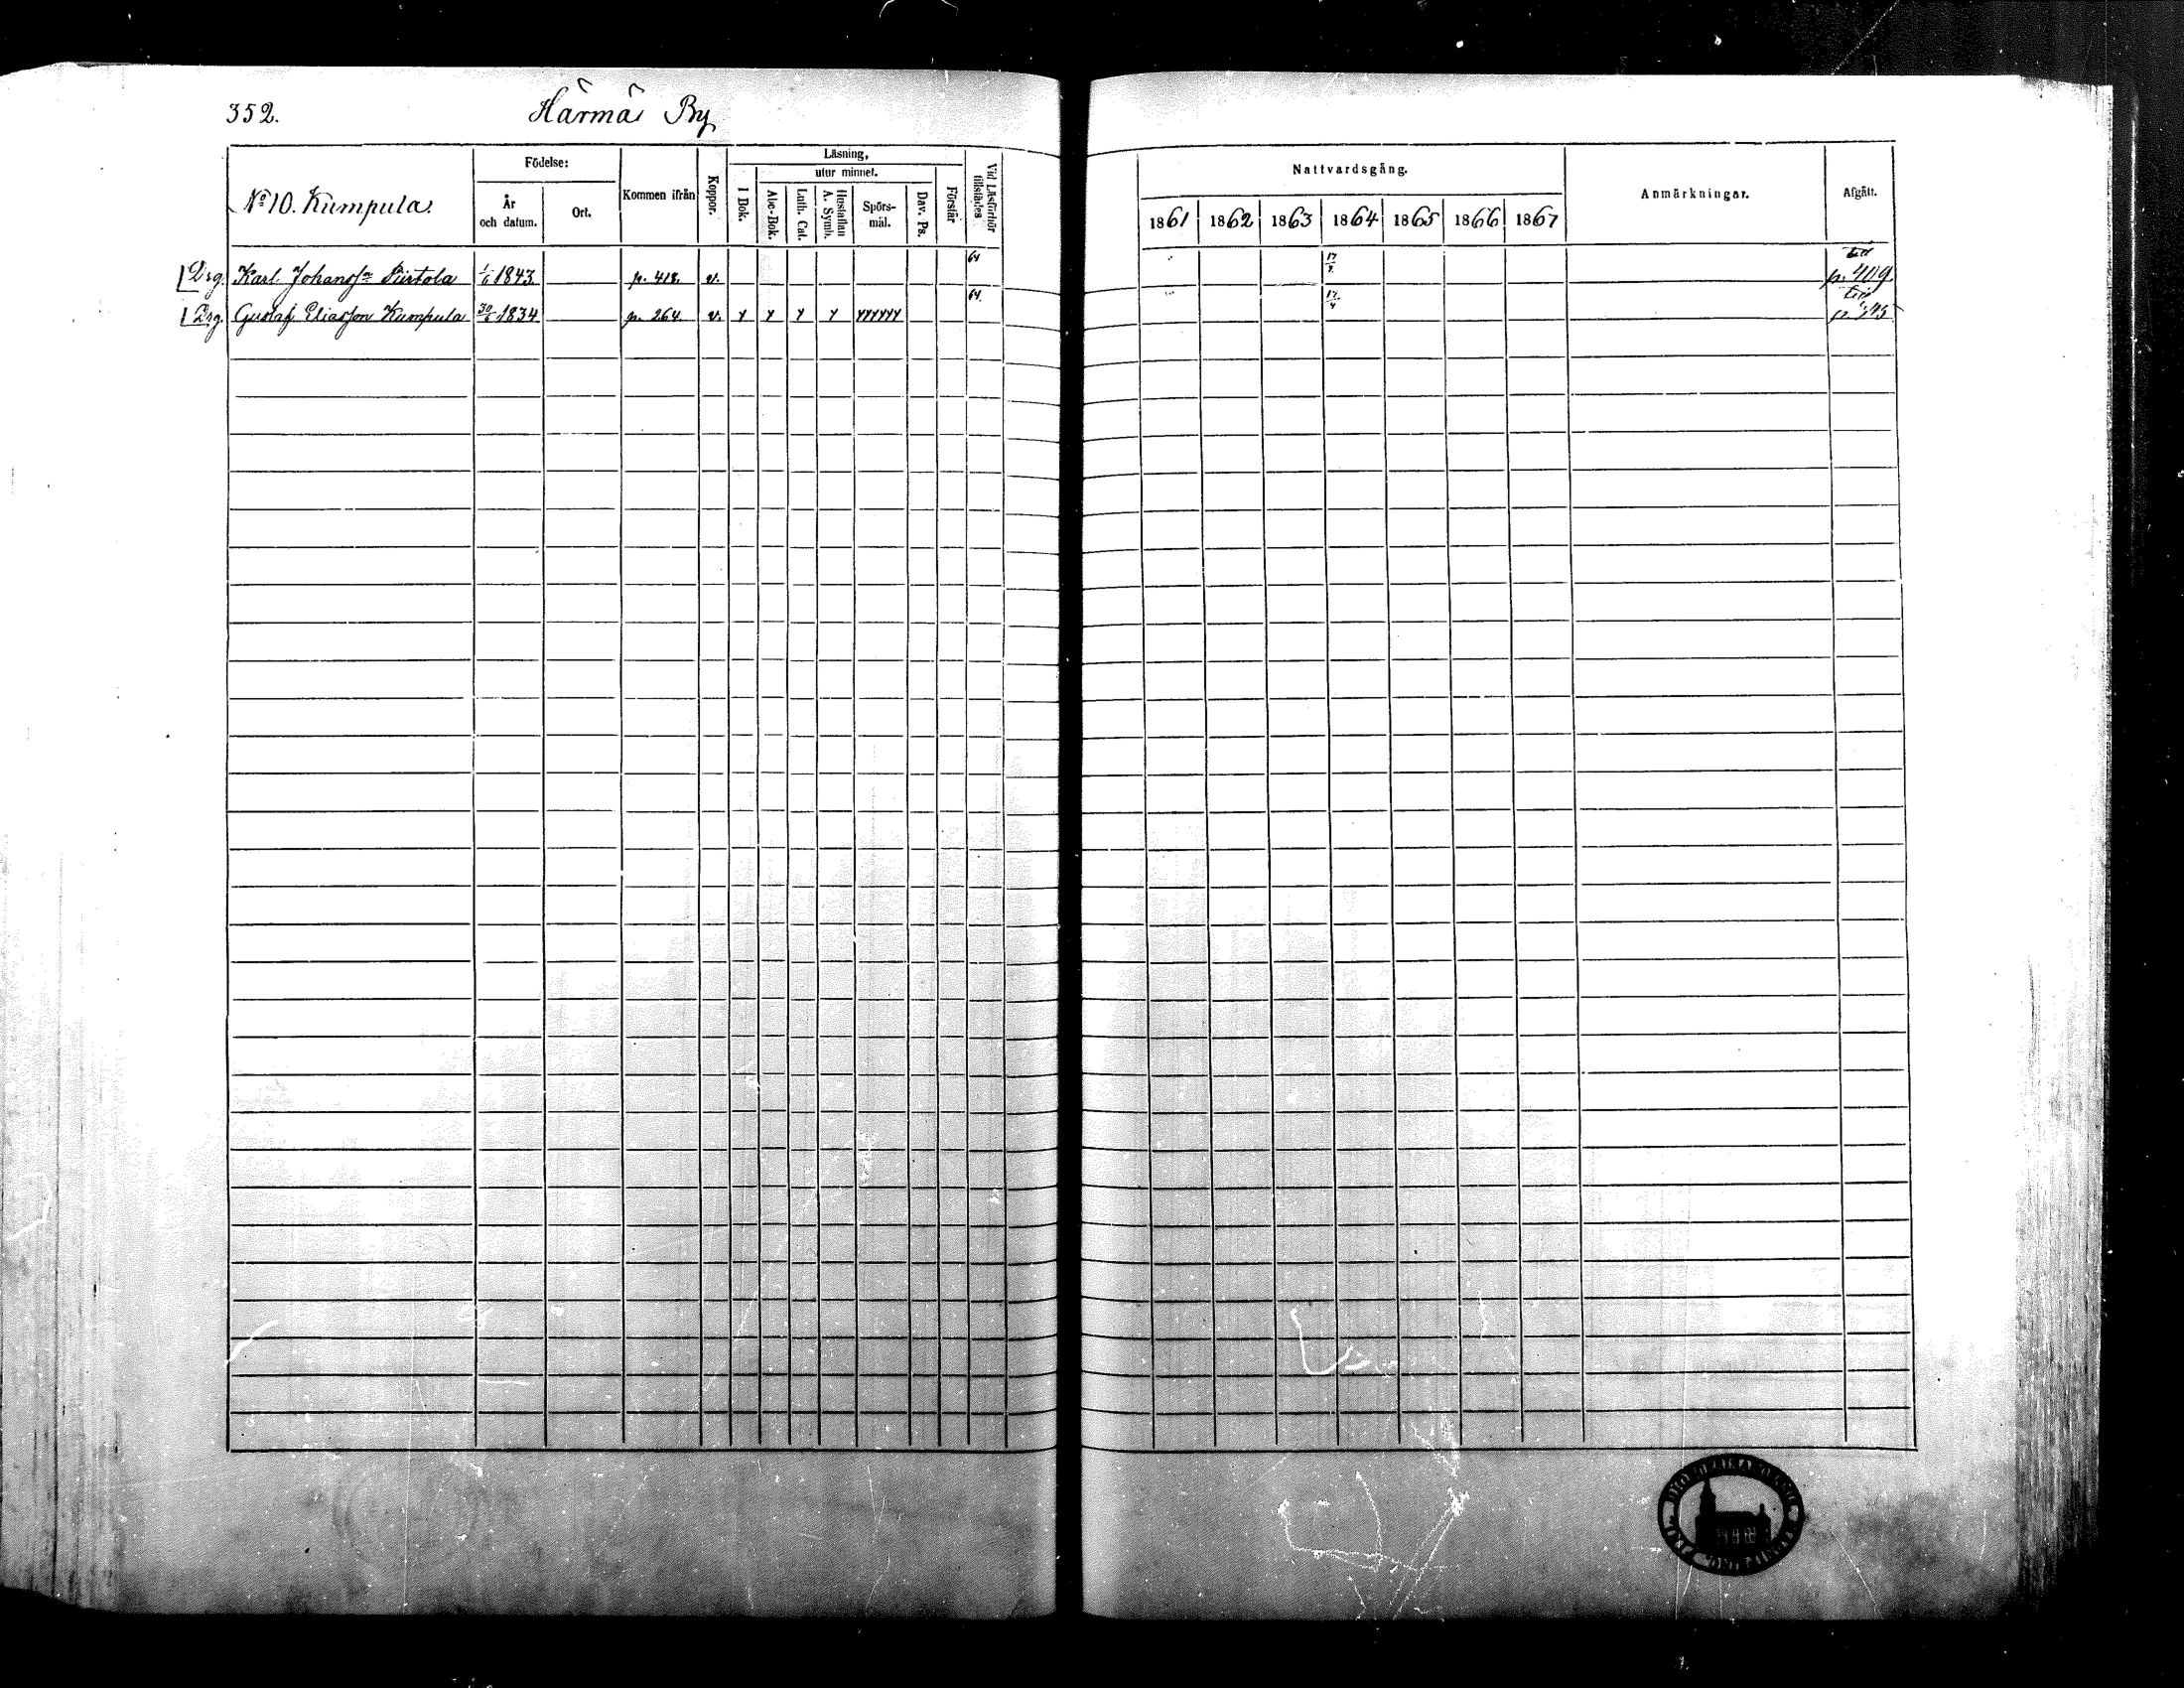 352. Härmä By
No 10. Kumpula.
Födelse:
År och datum.
Ort.
Kommen ifrån
Koppor.
Läsning,
utur minnet.
I Bok.
Abc-Bok.
Luth. Cat.
Hustaflan A. Symb.
Spörsmål.
Dav. Ps.
Förstår
Vid Läsförhör tillstädes
Nattvardsgång.
1861 1862 1863 1864 1865 1866 1867
Anmärkningar.
Afgått.
Drg. Karl Johanss:n Piirtola 1/6 1843. p. 418. v. 64 17/4 till p. 409.
Drg. Gustaf Eliasson Kumpula 30/6 1834 p. 264. v. 64. 17/4 till